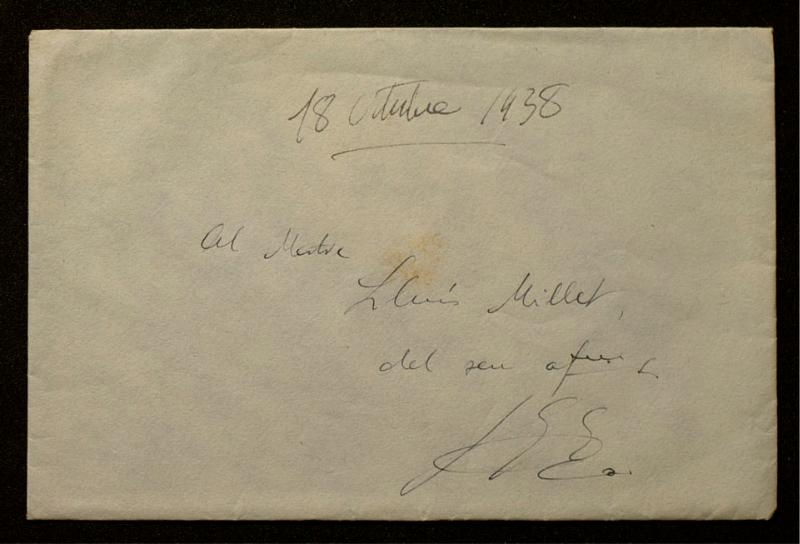 18 Octubre 1938
Al Mestre
Lluís Millet,
del seu